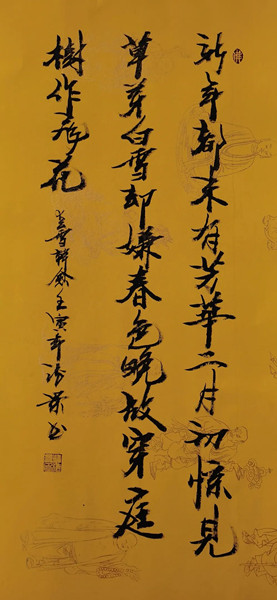 新年都未有芳華二月初惊見
草芽白雪却嫌春色晚故穿庭
樹作飛花
春雪韓愈壬寅年